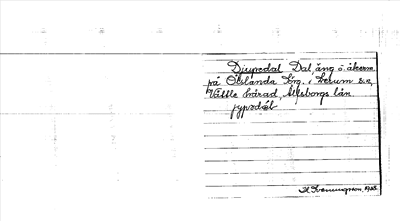 Djupedal Dal äng o. åkern
på Öxlanda Äng. i Lerum s:n,
Vättle härad, Älvsborgs län.
jypedal
H. Svenningsson, 1933.